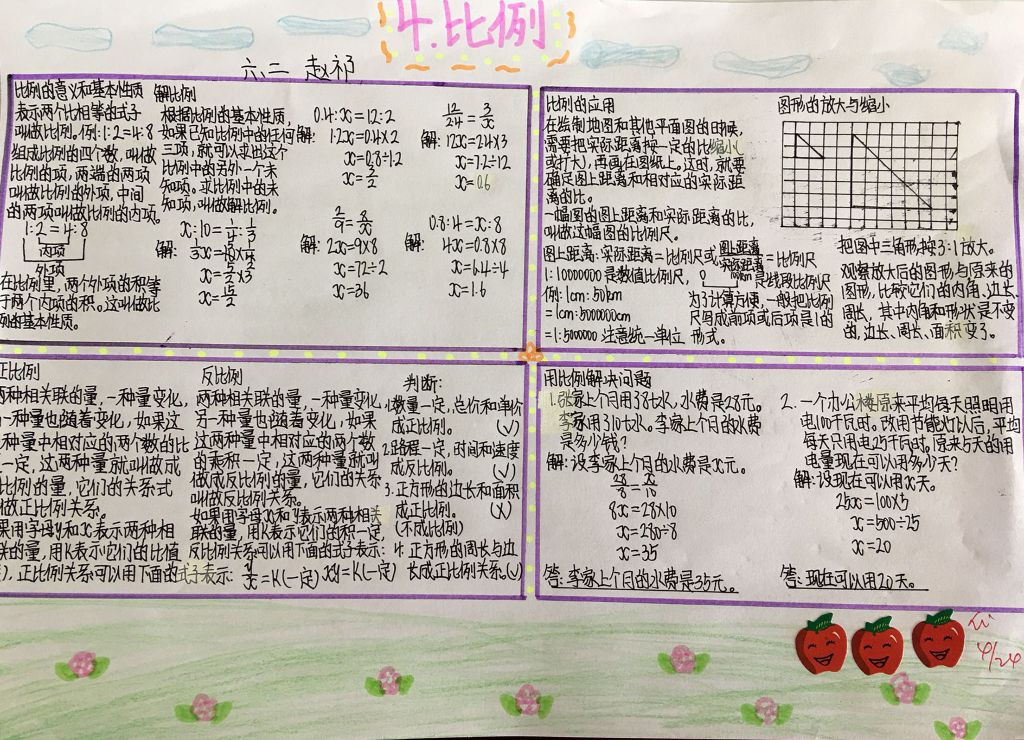 4.比例
六、二 赵祁
比例的意义和基本性质
表示两个比相等的式子
叫做比例。例:1:2=4:8
组成比例的四个数,叫做
比例的项,两端的两项
叫做比例的外项,中间
的两项叫做比例的内项。
1:2=4:8
内项
外项
在比例里,两个外项的积等
于两个内项的积。这叫做比
例的基本性质。
解比例
根据比例的基本性质,
如果已知比例中的任何
三项,就可以求出这个
比例中的另外一个未
知项。求比例中的未
知项,叫做解比例。
0.4:x=12:2
解: 12x=0.4×2
x=0.8÷12
12/24=3/x
解: 12x=24×3
x=72÷12
x=0.6
解:
x=15/2
2/9=8/x
解: 2x=9×8
x=72÷2
x=36
0.8:4=x:8
解: 4x=0.8×8
x=6.4÷4
x=1.6
比例的应用
在绘制地图和其他平面图的时候,
需要把实际距离按一定的比缩小(
或扩大),再画在图纸上。这时,就要
确定图上距离和相对应的实际距
离的比。
一幅图的图上距离和实际距离的比,
叫做这幅图的比例尺。
图上距离:实际距离=比例尺或图上距离/实际距离=比例尺
1:10000000是数值比例尺,
是线段比例尺
例:1cm:50km
=1cm:5000000cm
=1:5000000 注意统一单位
为了计算方便,一般把比例
尺写成前项或后项是1的
形式。
图形的放大与缩小
把图中三角形按3:1放大。
观察放大后的图形与原来的
图形,比较它们的内角、边长、
周长,其中内角和形状是不变
的,边长、周长、面积变了。
正比例
两种相关联的量,一种量变化,
一种量也随着变化,如果这
种量中相对应的两个数的比
一定,这两种量就叫做成
比例的量,它们的关系式
做正比例关系。
果用字母y和x表示两种相
联的量,用K表示它们的比值
),正比例关系可以用下面的式子表示: y/x=K(一定)
反比例
两种相关联的量,一种量变化
另一种量也随着变化,如果
这两种量中相对应的两个数
的乘积一定,这两种量就叫
做成反比例的量,它们的关系
叫做反比例关系。
如果用字母x和y表示两种相关
联的量,用K表示它们的积一定,
反比例关系可以用下面的式子表示:
xy=K(一定)
判断:
1.数量一定,总价和单价
成正比例。 (√)
2.路程一定,时间和速度
成反比例。 (√)
3.正方形的边长和面积
成正比例。 (X)
(不成比例)
4.正方形的周长与边
长成正比例关系。(√)
用比例解决问题
1.张家上个月用了8t水,水费是28元。
李家用了10t水。李家上个月的水费
是多少钱?
解:设李家上个月的水费是x元。
28/8=x/10
8x=28×10
x=280÷8
x=35
答:李家上个月的水费是35元。
2.一个办公楼原来平均每天照明用
电100千瓦时。改用节能灯以后,平均
每天只用电25千瓦时。原来5天的用
电量现在可以用多少天?
解:设现在可以用x天。
25x=100×5
x=500÷25
x=20
答:现在可以用20天。
4/24